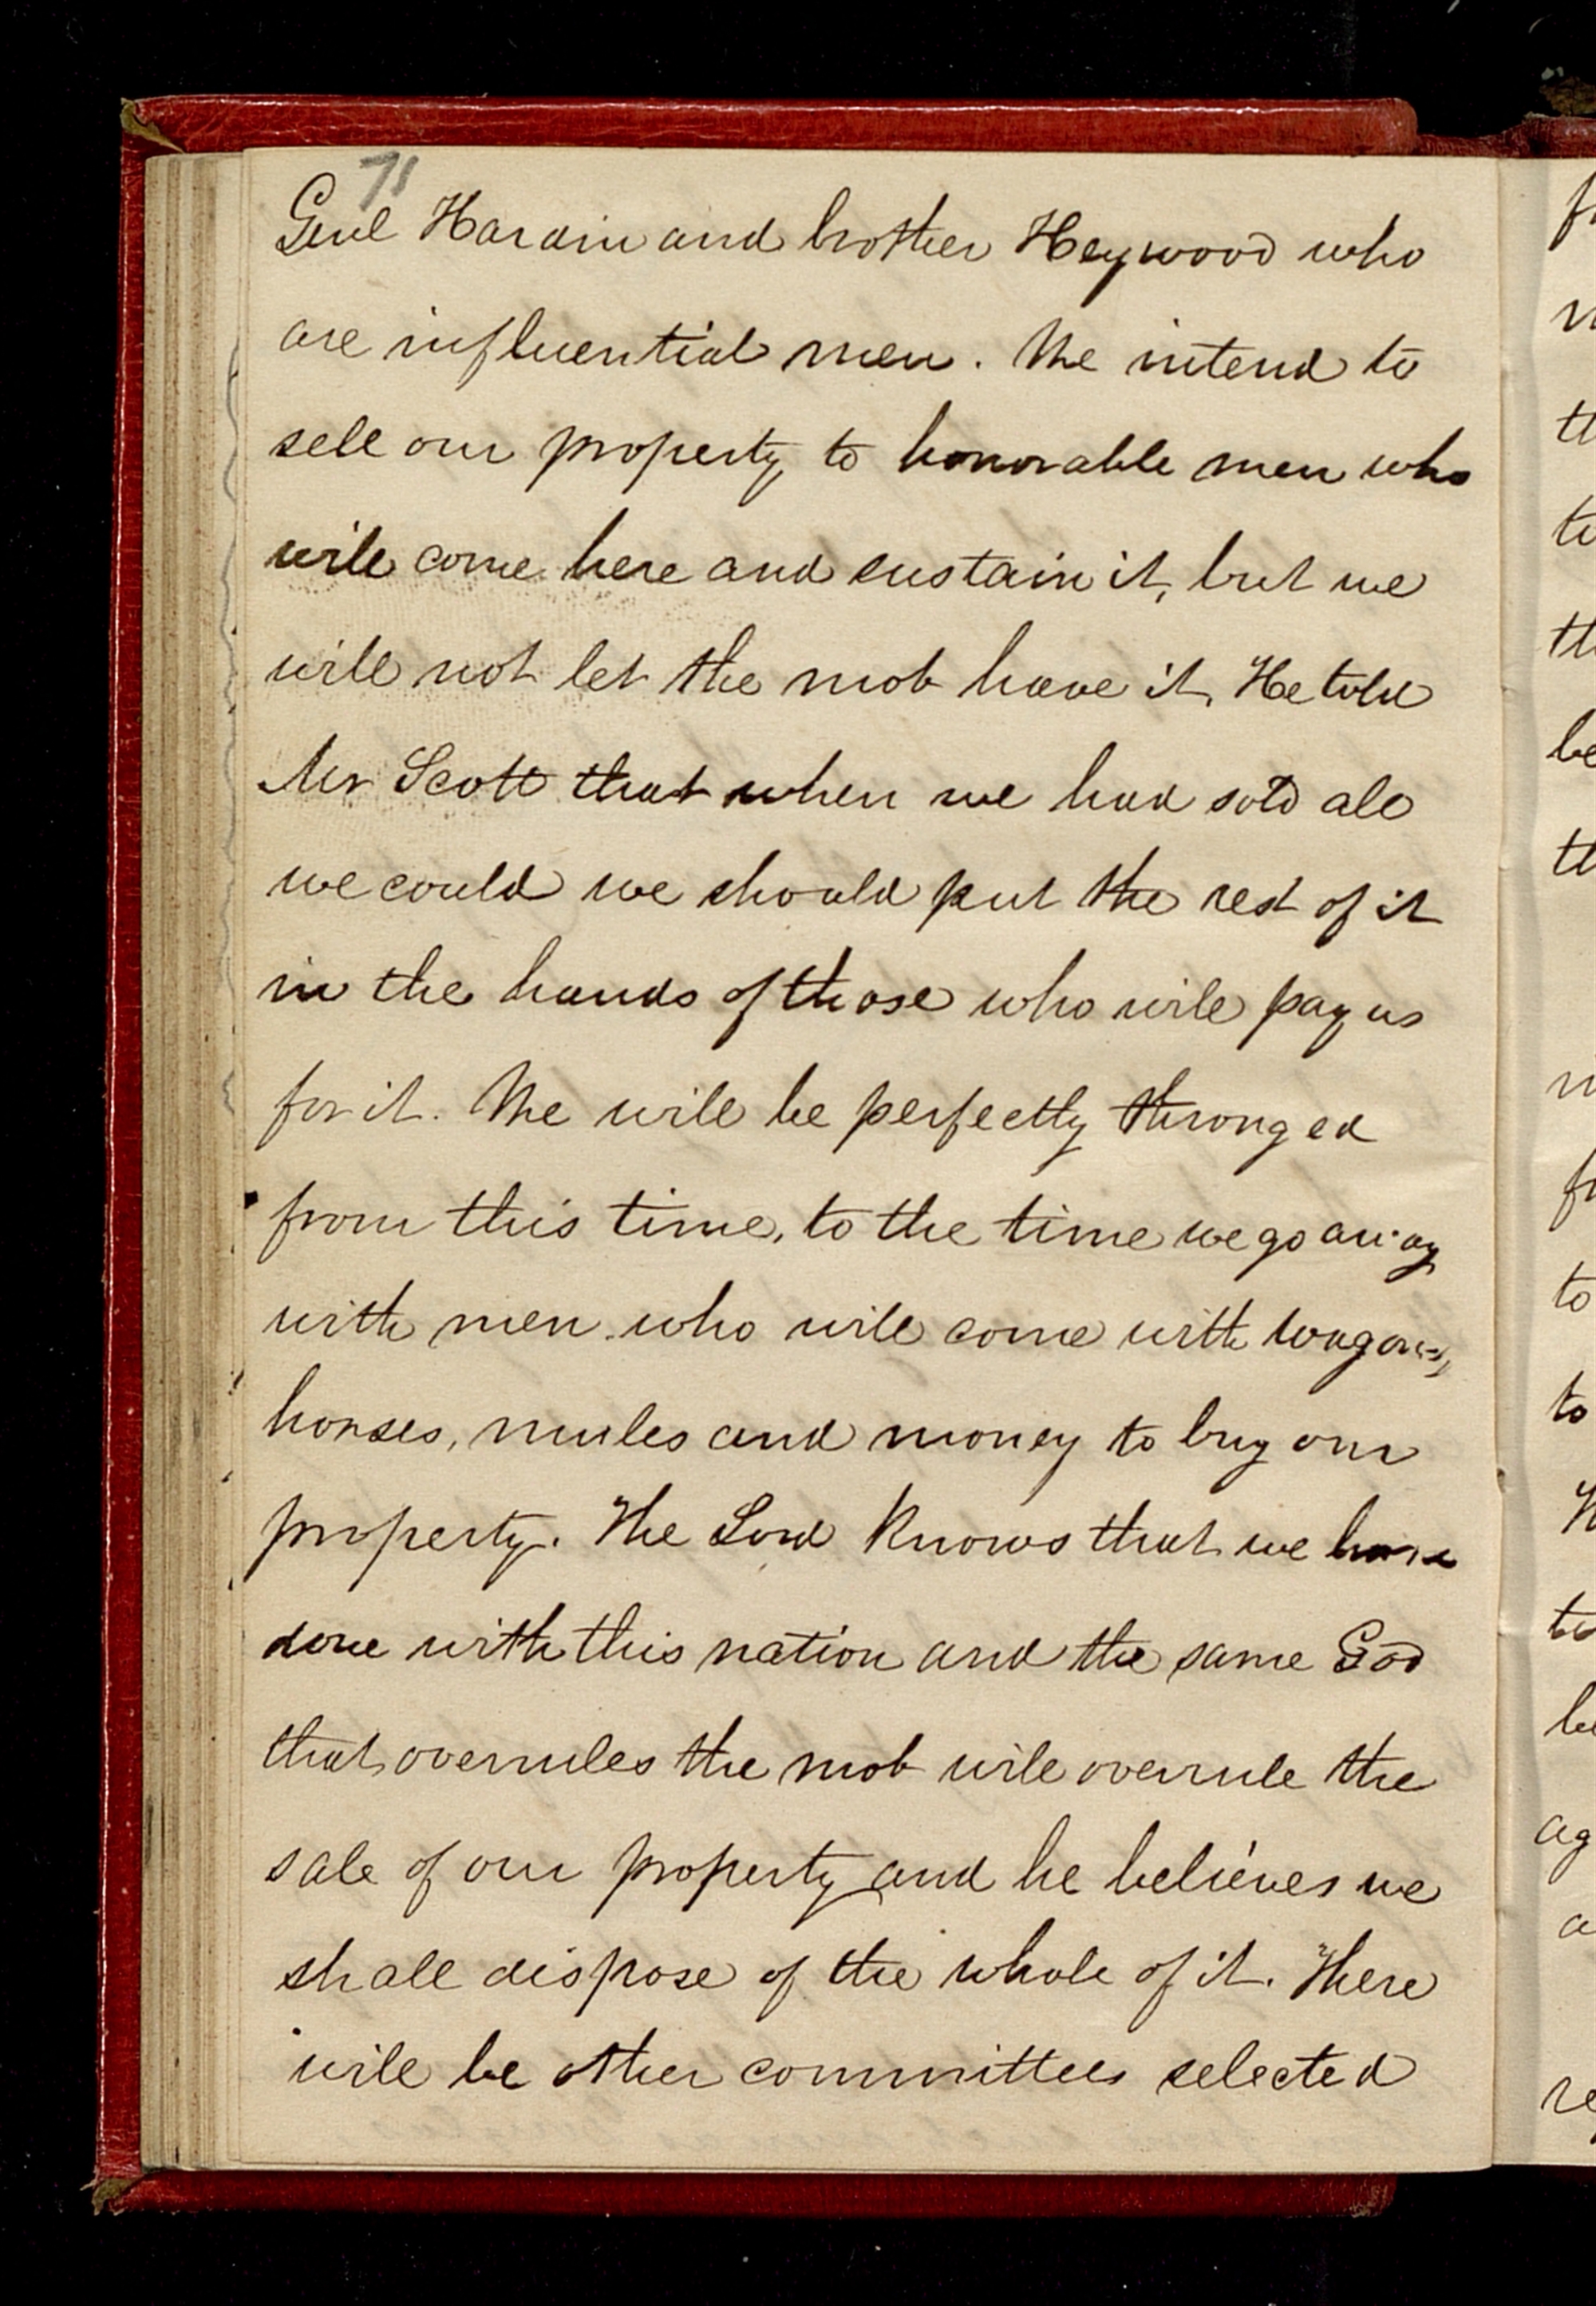 71
Genl Hardin and brother Heywood who
are influential men. We intend to
sell our property to honorable men who
will come here and sustain it, but we
will not let the mob have it, He told
Mr Scott that when we had sold all
we could we should put the rest of it
in the hands of those who will pay us
for it. We will be perfectly thronged
from this time, to the time we go away
with men who will come with wagons,
horses, mules and money to buy our
property. The Lord knows that we have
done with this nation and the same God
that overrules the mob will overrule the
sale of our property and he believes we
shall dispose of the whole of it. There
will be other committees selected